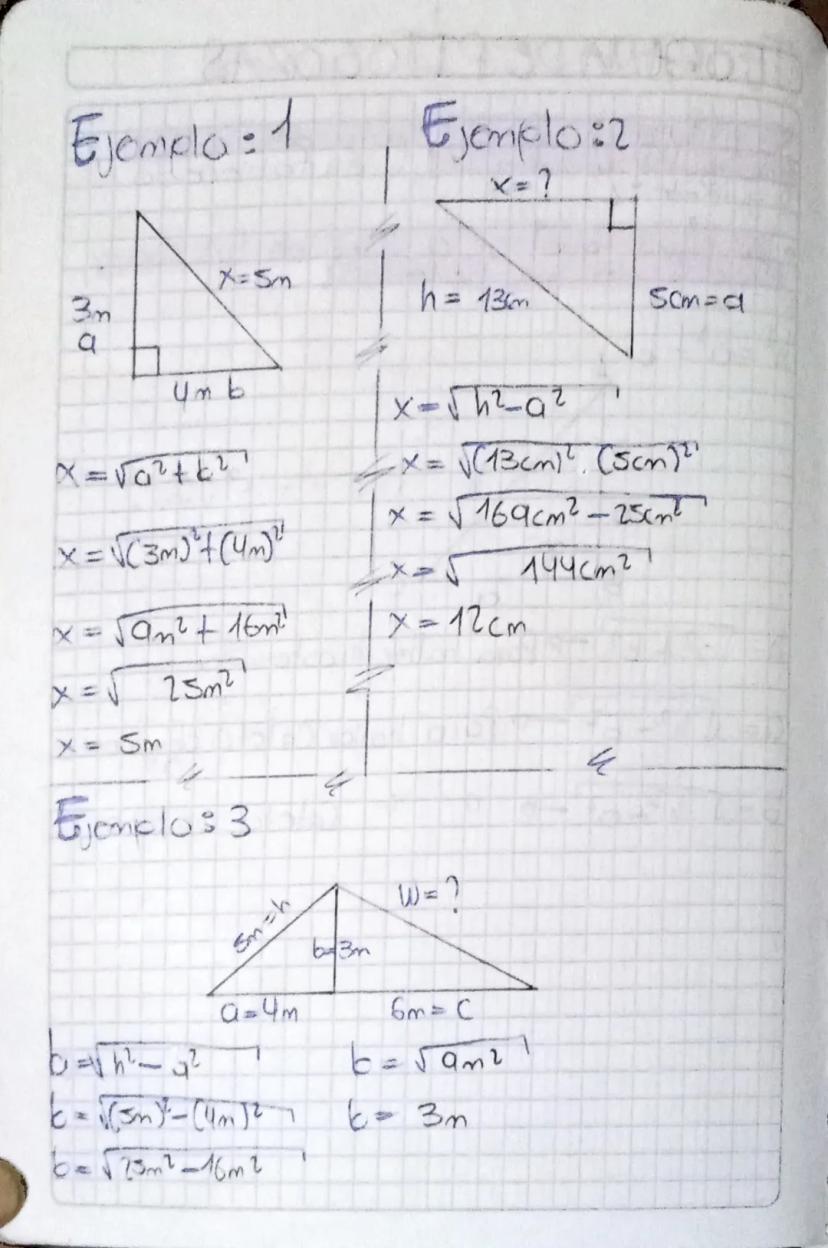 Ejemplo: 1
3m
a
x=5m
4m b
x=√a²+b²
x=√(3m)²+(4m)²
x=√9m²+16m²
x=√25m²
x= 5m
Ejemplo:2
x=?
h= 13cm
5cm=a
x=√h²-a²
x=√(13cm)². (5cm)²
x=√169cm²-25cm²
x=√144cm²
x=12cm
Ejemplo:3
5m=h
b=3m
W=?
a=4m
6m=c
b=√h²-a²
b=√(5m)²-(4m)²
b=√25m²-16m²
b=√9m²
b= 3m